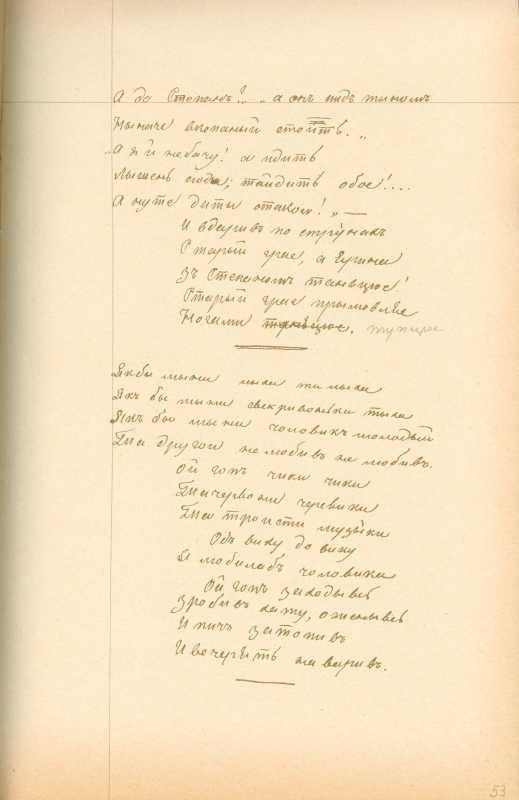 А до Степанъ!.. „а онъ пидъ тыномъ
Ныначе вкопаный стоитъ. „
„А я й небачу! а идить
Лышень сюда; тайдить обое!...
А нуте диты отакои! „ —
И вдаривъ по струнахъ
Старый грае, а Ярина
Зъ Степаномъ танцюе!
Старый грае прымовляе
Ногами танцюе. тупцюе
Якбы мыни лыхо та лыхо
Якъ бы мыни свекривонька тыха
Якъ бы мыни чоловикъ молодый
Та другои не любивъ не любивъ.
Ой гопъ чики чики
Та червони черевики
Та троисти музыки
Одъ вику до вику
Я любилабъ чоловика
Ой гопъ заходывсь
Зробивъ хату, оженывсь
И пичъ затопивъ
И вечерять наваривъ.
53